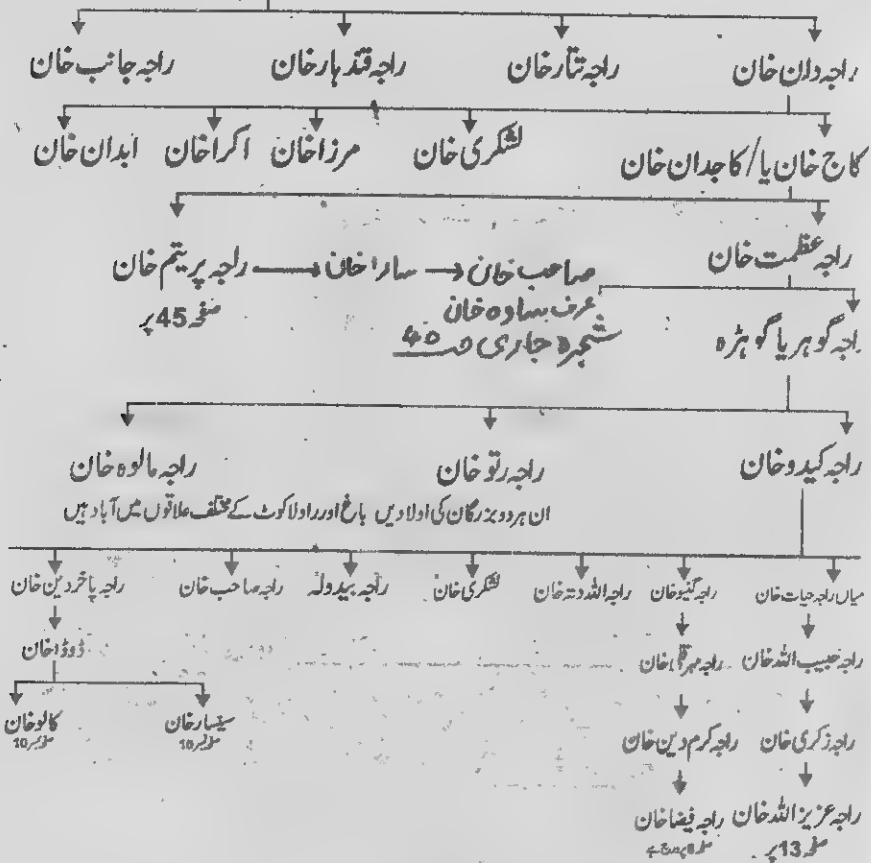 راجہ دان خان راجہ تتار خان راجہ قندہار خان راجہ جانب خان
کاج خان یا/کاجدان خان لشکری خان مرزا خان اکرا خان ابدان خان
راجہ عظمت خان
صاحب خان سارا خان راجہ پریتم خان
عرف سادہ خان صفحہ 45 پر
شجرہ جاری
راجہ گوہر یا گوہڑہ
راجہ کیدو خان راجہ رتو خان راجہ مالوہ خان
ان ہر دو بزرگان کی اولادیں باغ اور راولاکوٹ کے مختلف علاقوں میں آباد ہیں
میاں راجہ حیات خان راجہ گنیو خان راجہ اللہ دتہ خان لشکری خان راجہ بیدولہ راجہ صاحب خان راجہ پاخردین خان
راجہ حبیب اللہ خان راجہ مہر قلی خان ڈوڈا خان
راجہ زکری خان راجہ کرم دین خان سینسار خان کالو خان
صفحہ نمبر 10 صفحہ نمبر 10
راجہ عزیز اللہ خان راجہ فیضا خان
صفحہ 13 پر